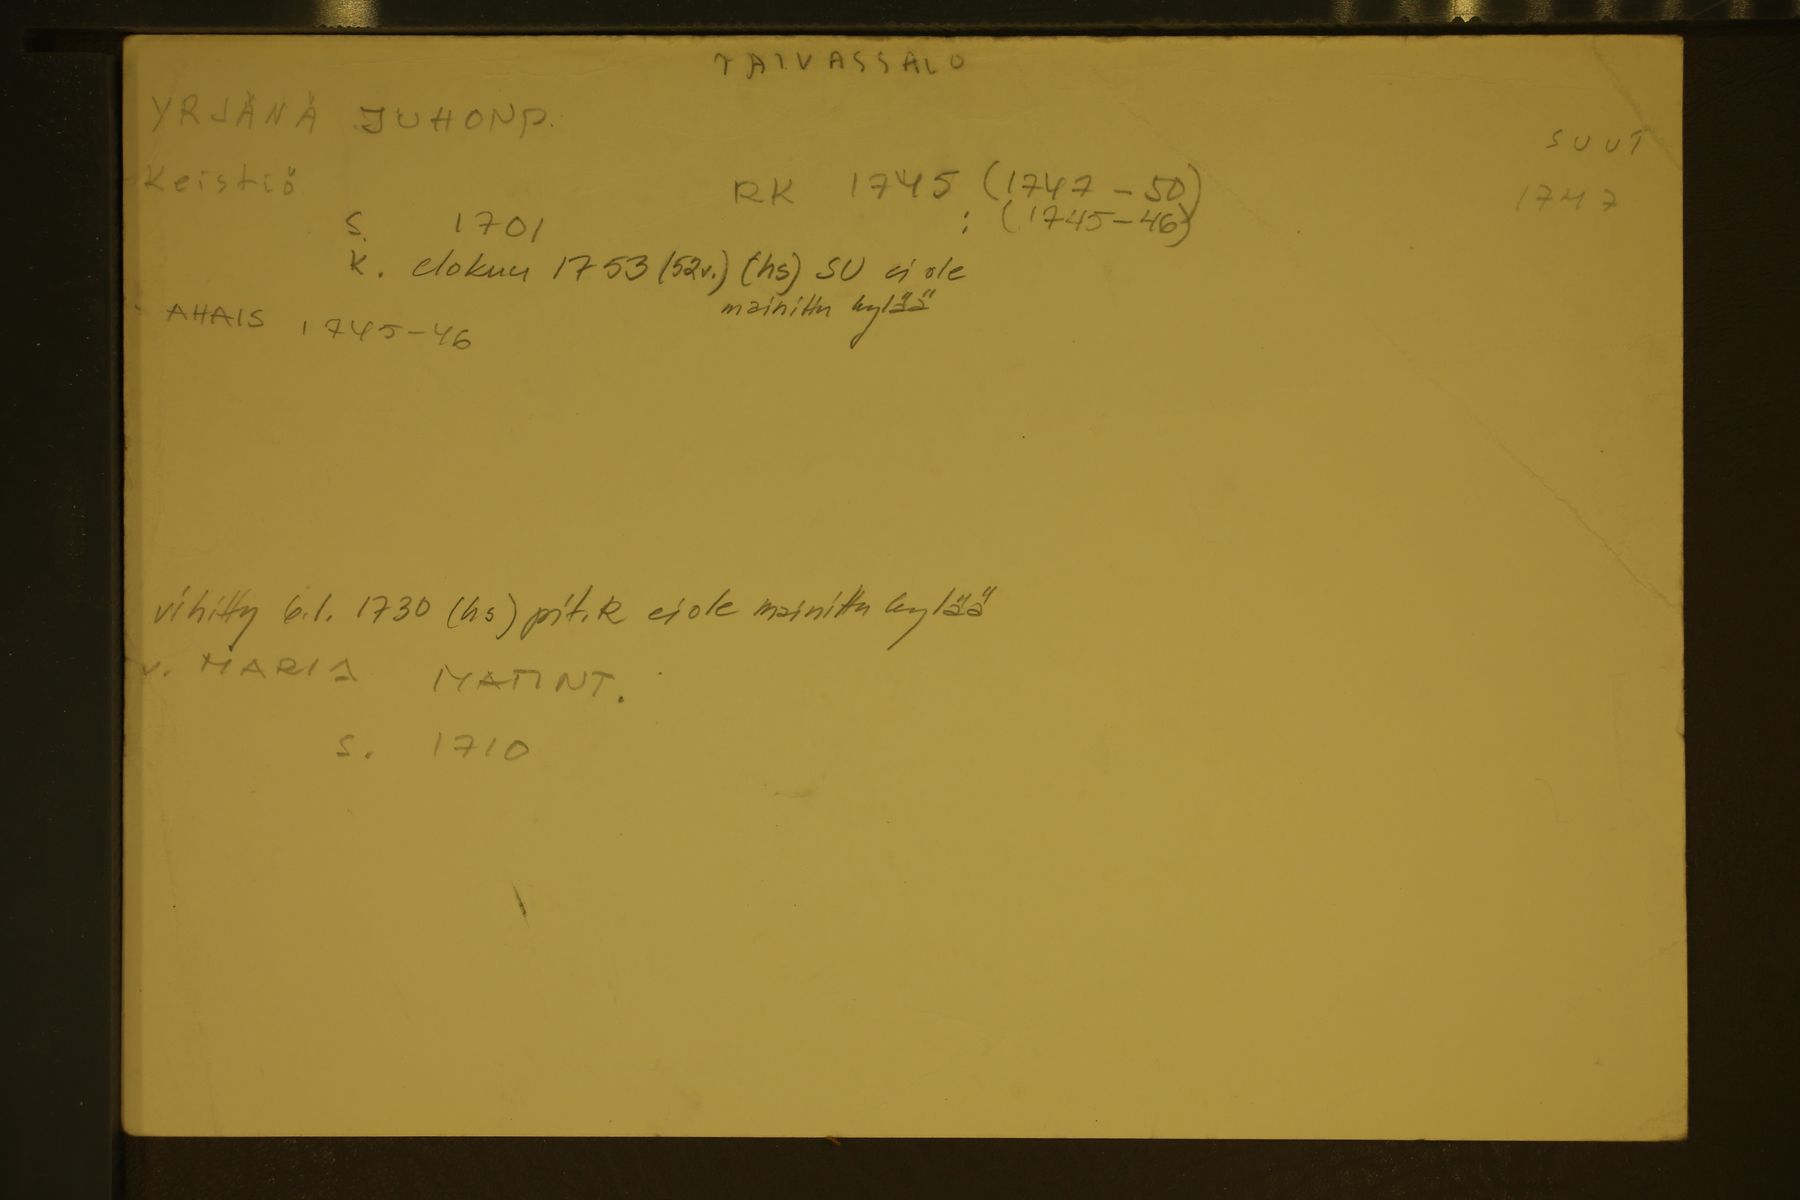 TAIVASSALO
YRJÄNÄ JUHONP.
SUUT
Keistiö
RK 1745 (1747-50)
1747
S. 1701
: (1745-46)
K. elokuu 1753 (52v.) (hs) SU ei ole
mainittu kylää
AHAIS 1745-46
vihitty 6.1. 1730 (hs) pit.k ei ole mainittu kylää
v. MARIA MATINT.
S. 1710